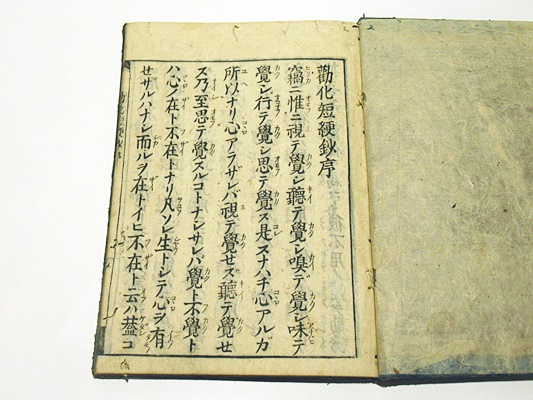 勸化短綆鈔序
竊ニ惟ニ視テ覺シ聽テ覺シ嗅テ覺シ味テ
覺シ行テ覺シ思テ覺ス是スナハチ心アルガ
所以ナリ心アラザレバ視テ覺せズ聽テ覺せ
ズ乃至思テ覺スルコトナシサレバ覺ト不覺ト
ハ心ノ在ト不在トナリ凡ソ生トシテ心ヲ有
せザルハナシ而ルヲ在トイヒ不在ト云ハ蓋コ